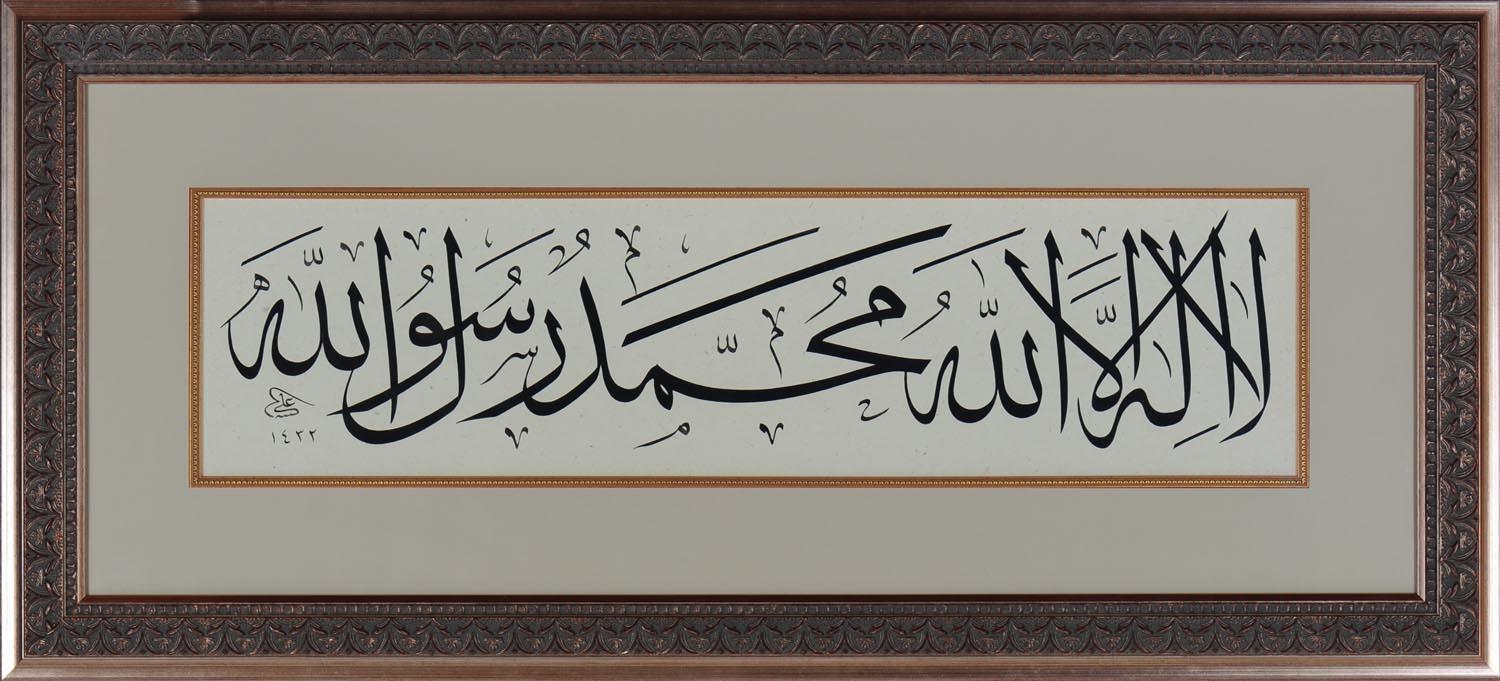 لا إله إلا الله محمد رسول الله
علي
١٤٣٢